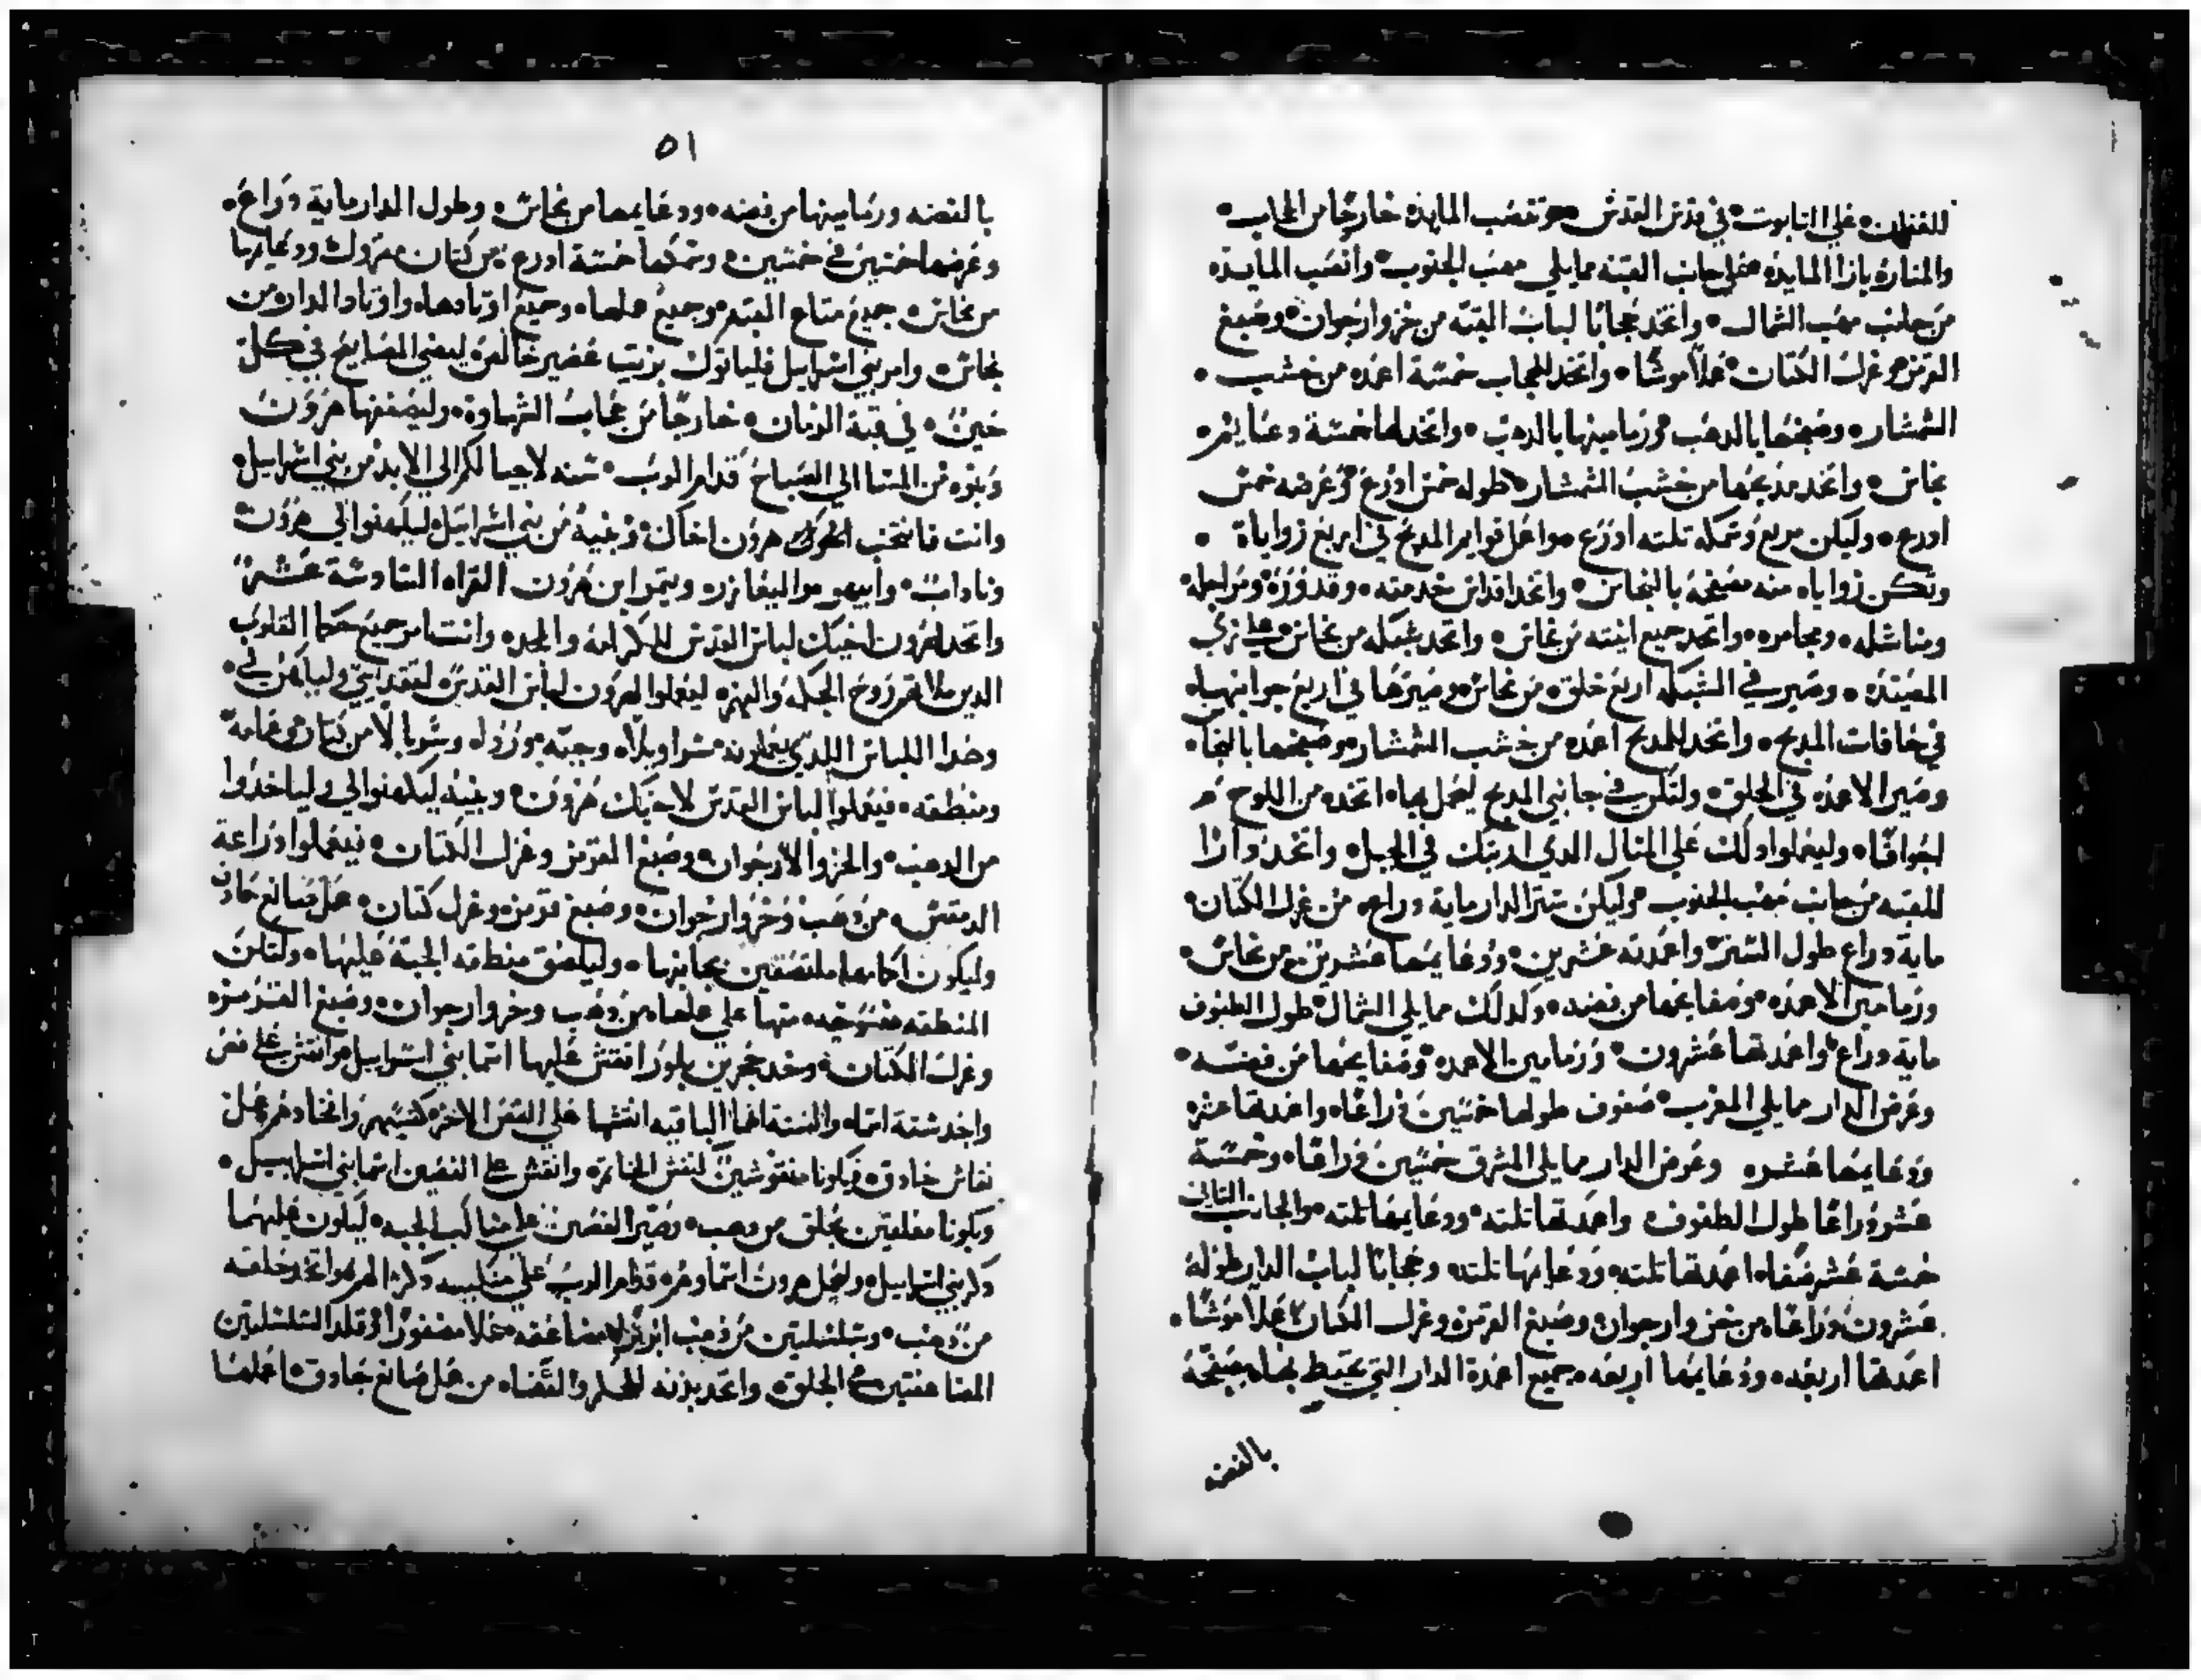 للغفران علي التابوت في قدس القدس وتنصب المايده خارجا من الحجاب
والمناره بازا المايده علي جانب القبه مما يلي مهب الجنوب وانصب المايده
من جانب مهب الشمال واتخد حجابا لباب القبه من خز وارجوان وصبغ
القرمز وغزل الكتان عملا موشا واتخد للحجاب خمسة اعمده من خشب
الشمشار وصفحها بالدهب ورزما مينها بالدهب واتخد لها خمسة دعايم
نحاس واتخد مدبحها من خشب الشمشار طوله خمس ادرع وعرضه خمس
ادرع وليكن مربع وسمكه تلته ادرع واعمل قوايم المدبح في اربع زواياه
وتكن زواياه منه مصفحه بالنحاس واتخد اقداس خدمته وقدوره ومراجله
ومناشله ومجامره واتخد جميع انيته من نحاس واتخد شبكه من نحاس علي زي
المصيده وصير في الشبكه اربع حلق من نحاس وصيرها في اربع جوانبها
في حافات المدبح واتخد للمدبح اعمده من خشب الشمشار وصفحها بالنحاس
وصير الاعمده في الحلق ولتكن في جانبي المدبح ليحمل بها اتخده من اللوح
اجوافا وليعملوا دلك علي المتال الدي اريتك في الجبل واتخد دارا
للقبه من جانب مهب الجنوب وليكن ستر الدار ماية دراع من غزل الكتان
ماية دراع طول الستر واعمدته عشرين ودعايمها عشرين من نحاس
ورزما مين الاعمده ومفايحها من فضه وكدلك مما يلي الشمال طول الطنوف
ماية دراع واعمدتها عشرون ورزما مين الاعمده ومفايحها من فضه
وعرض الدار مما يلي المغرب صفوف طولها خمسين دراعا واعمدتها عشره
ودعايمها عشره وعرض الدار مما يلي المشرق خمسين دراعا وخمسة
عشر دراعا طول الطنوف واعمدتها تلته ودعايمها تلته والجانب التاني
خمسة عشر صفا اعمدتها تلته ودعايمها تلته وحجابا لباب الدار طوله
عشرون دراعا من خز وارجوان وصبغ القرمز وغزل الكتان عملا موشا
اعمدتها اربعه ودعايمها اربعه جميع اعمدة الدار التي تحيط بها مصفحه
بالفضه
٥١
بالفضه ورزما مينها من فضه ودعايمها من نحاس وطول الدار ماية دراع
وعرضها خمسين في خمسين وسمكها خمسة ادرع من كتان مغزول ودعايمها
من نحاس جميع متاع القبه وجميع عملها وجميع اوتادها واوتاد الدار من
نحاس وامر بني اسراييل فلياتوك بزيت عصير خالص ليضي المصابيح في كل
حين في قبة الزمان خارجا من حجاب الشهادة وليصففها هرون
وبنوه من المسا الي الصباح قدام الرب سنه لاجيالكم الي الابد من بني اسراييل
وانت فانتخب هرون اخاك وبنيه من بني اسراييل ليكهنوا لي هرون
وناداب وابيهو واليعازر ويتمر ابن هرون القراه السادسة عشر
واتخد لهرون اخيك لباس القدس للكرامه والمجد وانت امر جميع حكما القلوب
الدين ملاتهم روح الحكمه والفهم ليعملوا لهرون لباس القدس لتقديسي وليكهن لي
وهدا اللباس اللدي يعملونه سراويلا وجبه وزوله وسربالا من كتان وعمامة
ومنطقه فيعملوا لباس القدس لاخيك هرون وبنيه ليكهنوا لي وليأخدوا
من الدهب والخز والارجوان وصبغ القرمز وغزل الكتان فيعملوا دراعة
الدمقس من دهب وخز وارجوان وصبغ قرمز وغزل كتان عمل صانع حادق
وليكون اكامها ملتصقين بجانبها وليلصق منطقه الجبة عليها ولتكن
المنطقه منسوجه منها علي عملها من دهب وخز وارجوان وصبغ القرمز
وغزل الكتان وخد حجرين بلور انقش عليها اسما بني اسراييل وانقش علي فص
واحد ستة اسما والستة اسما الباقيه انقشها علي الفص الاخر كسنينهم واتخادهم عمل
نقاش حادق ويكونا منقوشين كنقش الخاتم وانقش علي الفصين اسما بني اسراييل
ويكونا مغلقين بحلق من دهب وصير الفصين علي مناكب الجبه ليكون عليهما
دكر بني اسراييل وليحمل هرون اسماوهم قدام الرب علي منكبيه دكرا لهم واتخد حلقه
من دهب وسلسلتين من دهب ابريز مضاعفه عملا مضفورا وقلد السلسلتين
المضاعفتين في الحلق واتخد بزنه للحكم والقضا من عمل صانع حادق اعملها